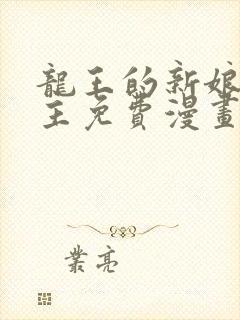 龍王的新娘
主免費漫畫
業亮